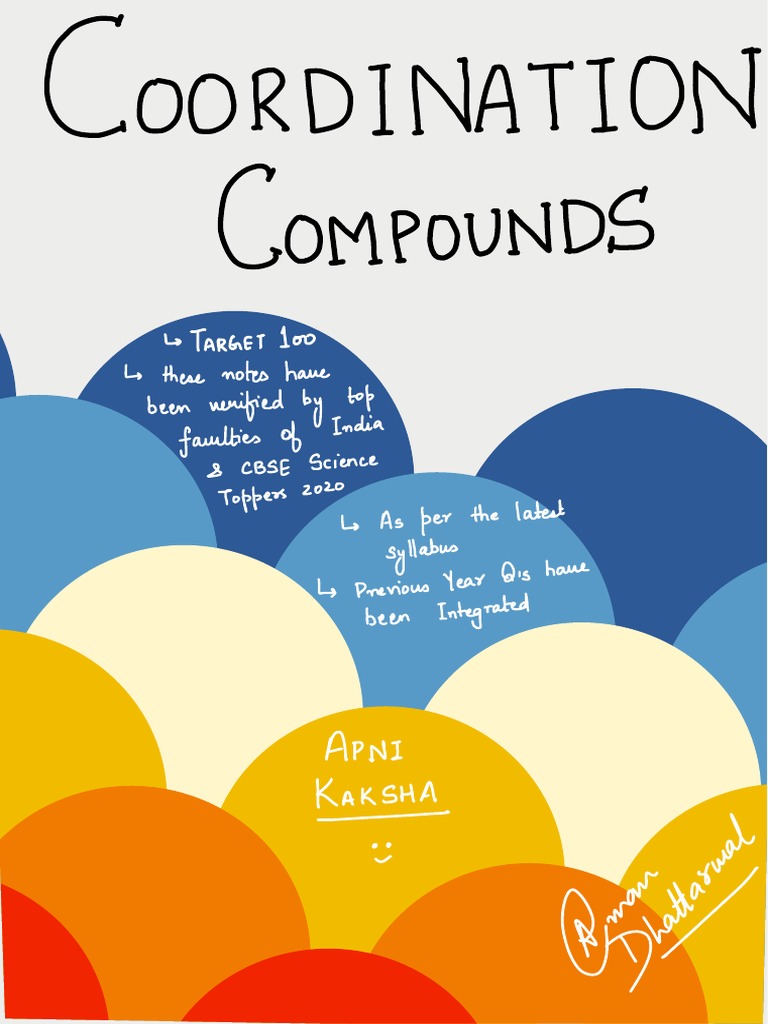 COORDINATION
COMPOUNDS
↳ TARGET 100
↳ these notes have
been verified by top
faculties of India
& CBSE Science
Toppers 2020
↳ As per the latest
syllabus
↳ Previous Year Q's have
been Integrated
APNI
KAKSHA
Aman
Dhattarwal